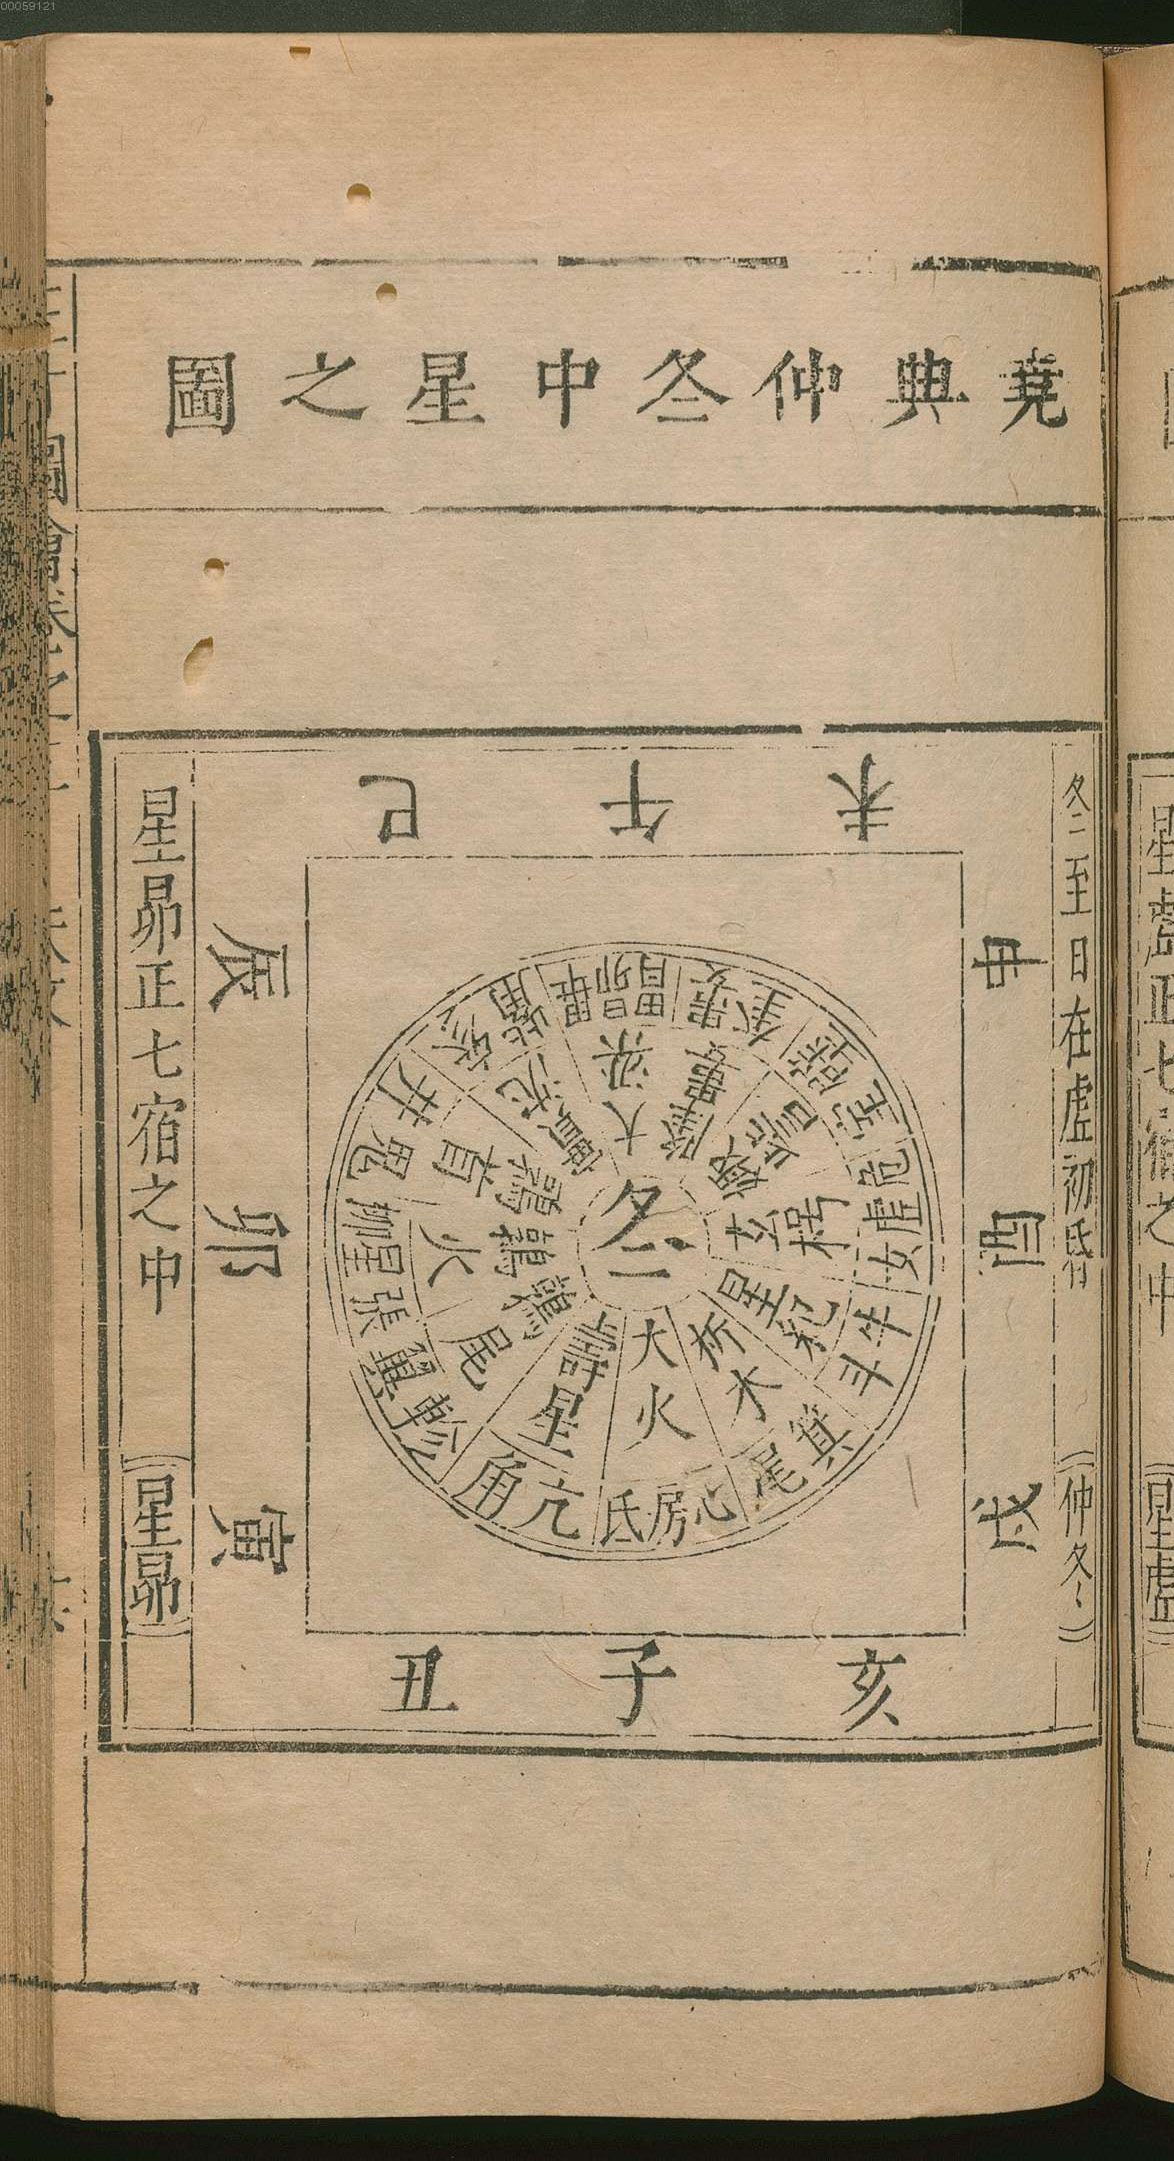 00059121
堯典仲冬中星之圖
冬至日在虛初昏
仲冬
未
午
巳
申
酉
戌
辰
卯
寅
亥
子
丑
冬
大梁
降婁
娵訾
玄枵
星紀
析木
大火
壽星
鶉尾
鶉火
鶉首
實沈
胃昴畢
奎婁
室壁
女虛危
斗牛
尾箕
氐房心
角亢
翼軫
柳星張
井鬼
觜參
星昴正七宿之中
星昴
圖會
星虛正七宿之中
星虛